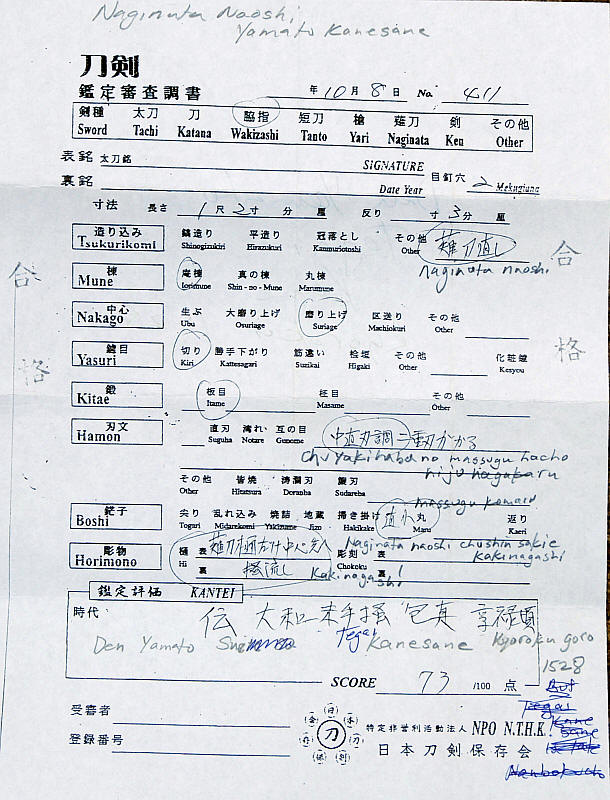 Naginata Naoshi
Yamato Kanesane
刀剣
鑑定審査調書
年 10 月 8 日 No. 411
剣種 太刀 刀 脇指 短刀 槍 薙刀 剣 その他
Sword Tachi Katana Wakizashi Tanto Yari Naginata Ken Other
表銘 太刀銘
SiGNATURE
裏銘
Date Year
目釘穴 2 Mekugiana
寸法 長さ 1 尺 2 寸 分 厘 反り 寸 3 分 厘
造り込み 鎬造り 平造り 冠落とし その他 薙刀直し
Tsukurikomi Shinogizukiri Hirazukuri Kanmuriotoshi Other
Naginata naoshi
合格
合格
棟 庵棟 真の棟 丸棟
Mune Iorimune Shin - no - Mune Marumune
中心 生ぶ 大磨り上げ 磨り上げ 区送り その他
Nakago Ubu Osuriage Suriage Machiokuri Other
鑢目 切り 勝手下がり 筋違い 桧垣 その他 化粧鑢
Yasuri Kiri Kattesagari Suzikai Higaki Other Kesyou
鍛 板目 柾目 その他
Kitae Itame Masame Other
刃文 直刃 湾れ 互の目 中直刃調 二重刃かかる
Hamon Suguha Notare Gunome
Chu Yakihaba no massugu hacho
niju hagakaru
その他 皆焼 涛瀾刃 簾刃
Other Hitatsura Doranba Sudareba
massugu komaru
鋩子 尖り 乱れ込み 焼詰 地蔵 掃き掛け 直小丸 返り
Boshi Togari Midarekomi Yakizume Jizo Hakikake Maru Kaeri
Naginata naoshi chushin sakie
kakinagashi
彫物 樋 表 彫刻 表
Horimono Hi 裏 掻流し Chokoku 裏
Kakinagashi
鑑定評価 KANTEI
時代 伝 大和 末手掻 包真 享禄頃
Den Yamato Sue Tegai Kanesane Kyoroku goro
1528
SCORE 73 /100 点
受審者
登録番号
刀
特定非営利活動法人 NPO N.T.H.K.
日本刀剣保存会